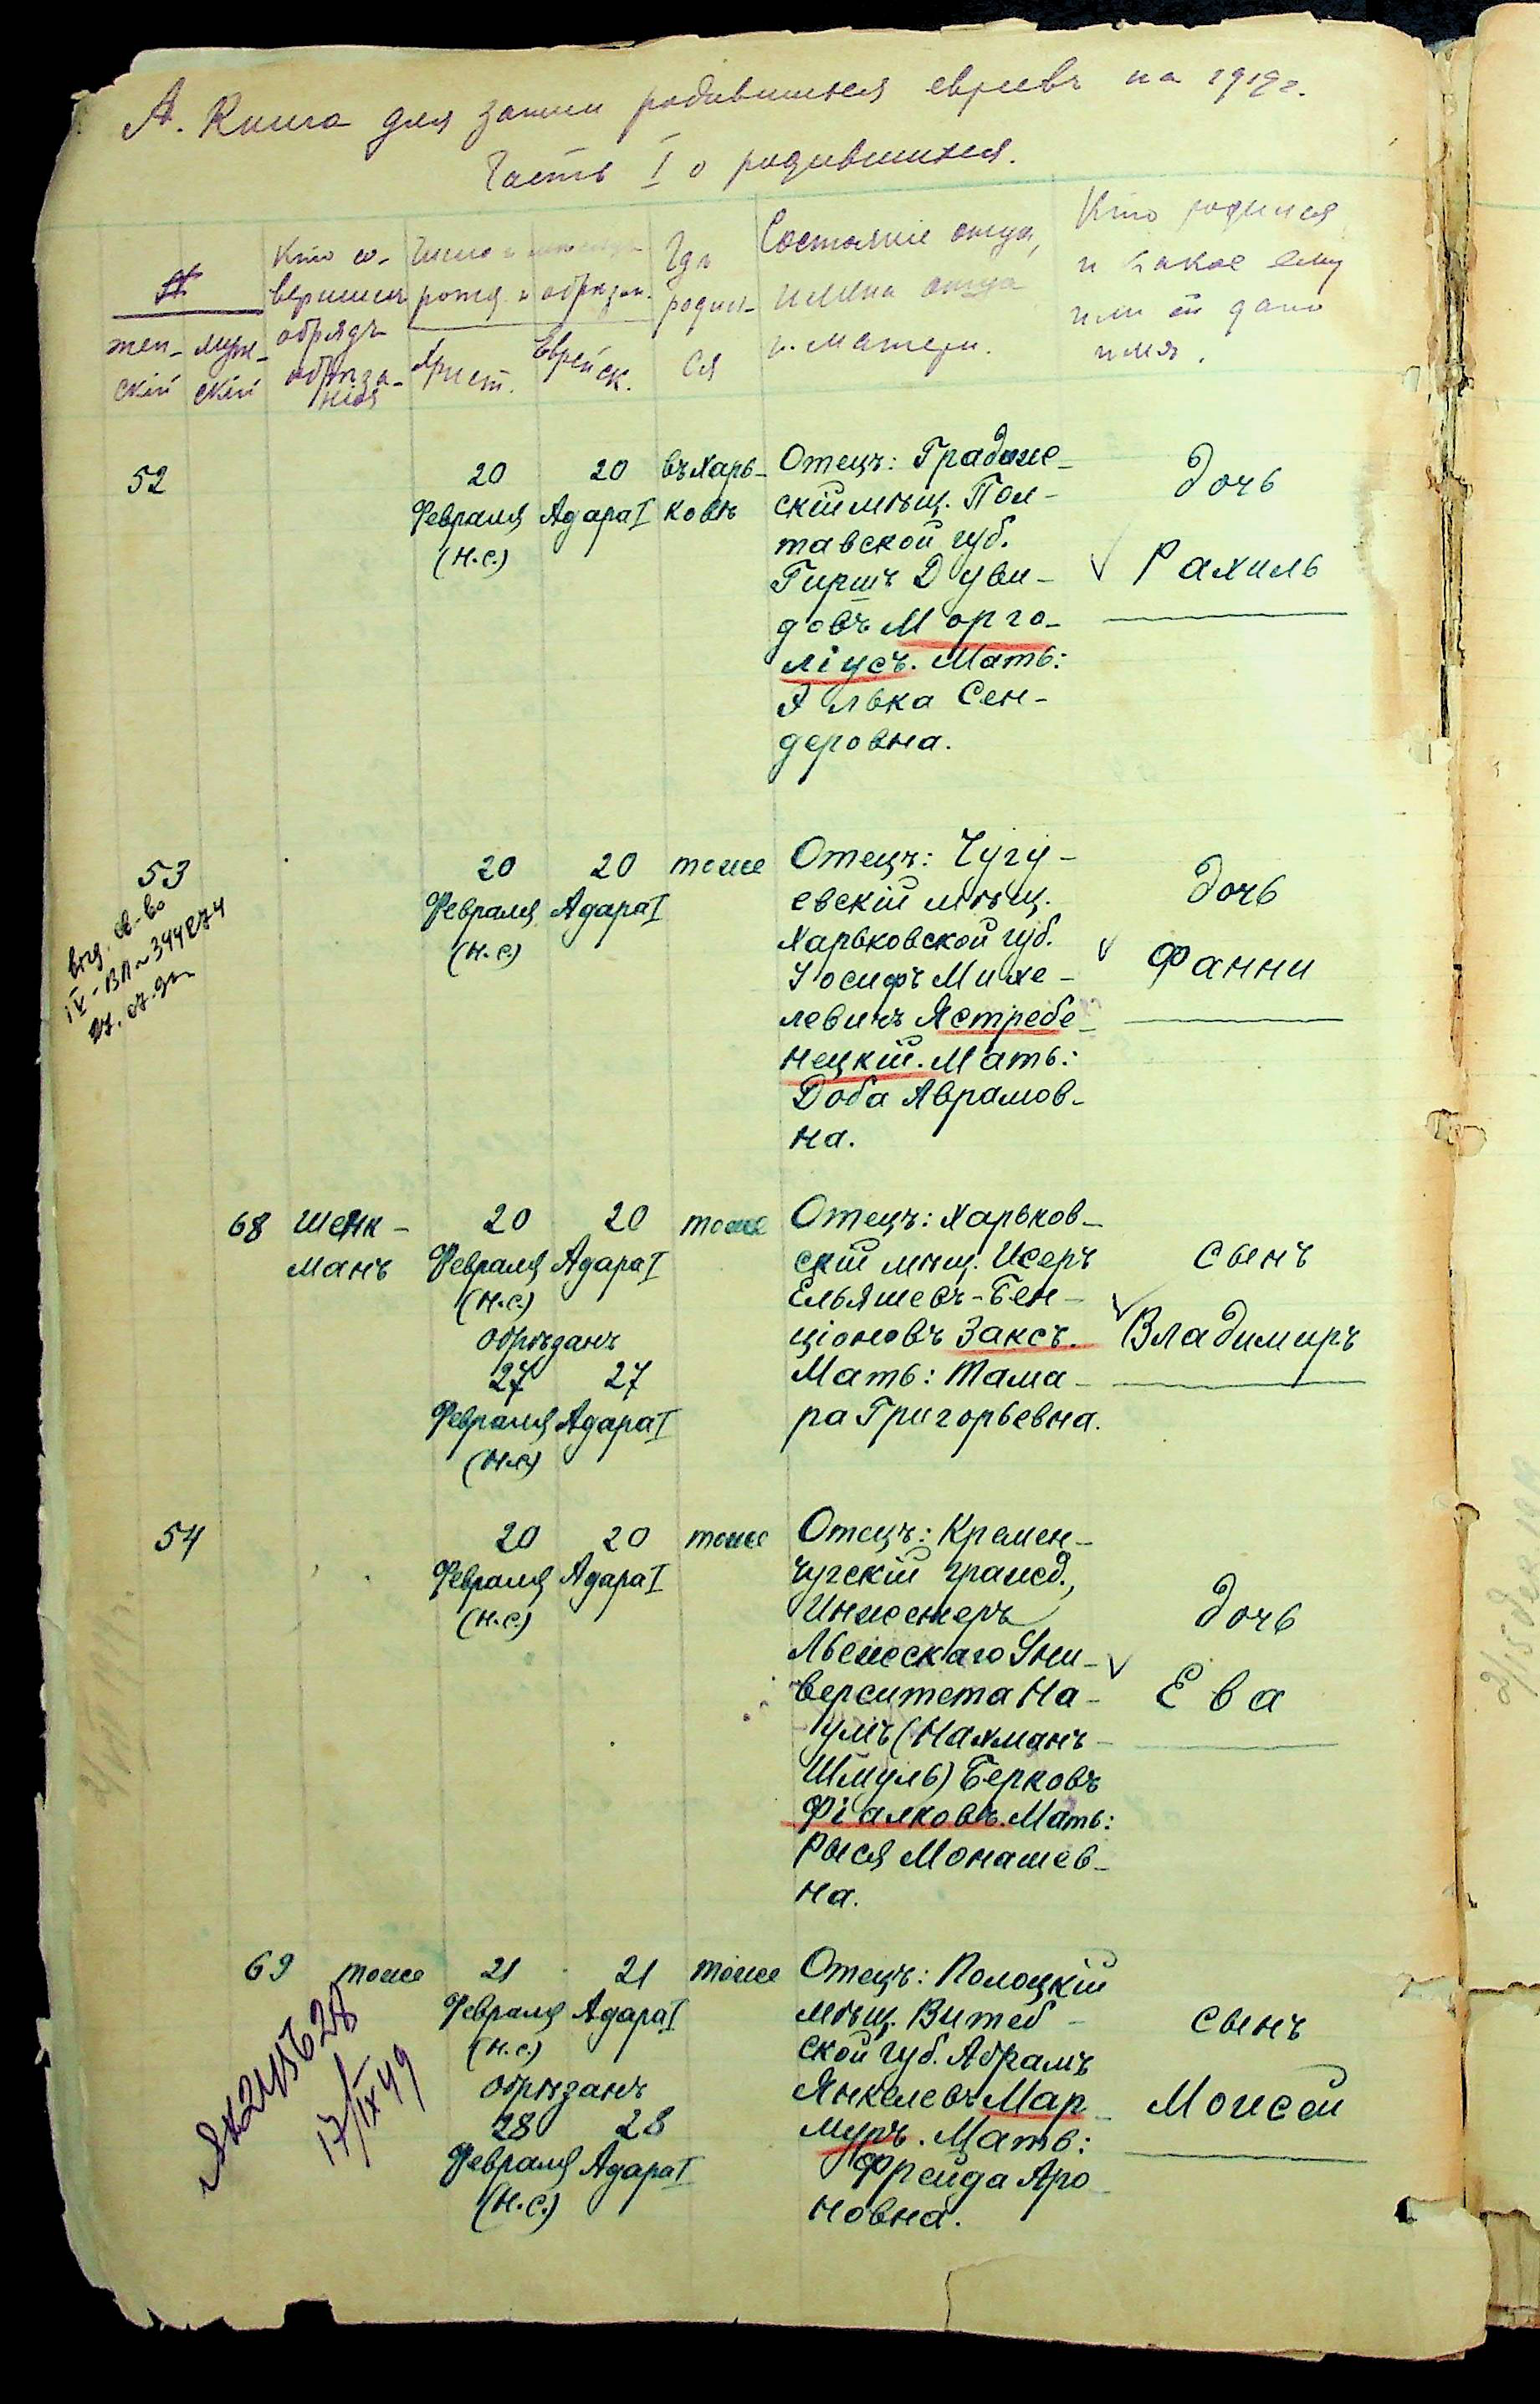 А. Книга для записи родившихся евреевъ на 1919 г.
Часть I о родившихся.
№
жен-
скій
муж-
скій
Кто со-
вершилъ
обрядъ
обрѣза-
нія
Число и мѣсяцъ
рожд. и обрѣзан.
Христ.
Еврейск.
Гдѣ
родил-
ся
Состояніе отца,
имена отца
и матери.
Кто родился
и какое ему
или ей дано
имя.
52
20
Февраля
(н.с.)
20
Адара I
въ Харь-
ковѣ
Отецъ: Градиж-
скій мѣщ. Пол-
тавской губ.
Гиршъ Дуви-
довъ Морго-
ліусъ. Мать:
Элька Сен-
деровна.
дочь
Рахиль
53
выд. св-во
IV-ВЛ № 344274
20
Февраля
(н.с.)
20
Адара I
тоже
Отецъ: Чугу-
евскій мѣщ.
Харьковской губ.
Іосифъ Михе-
левичъ Ястребе-
нецкій. Мать:
Доба Аврамов-
на.
дочь
Фанни
68
Шенк-
манъ
20
Февраля
(н.с.)
обрѣзанъ
27
Февраля
(н.с.)
20
Адара I
27
Адара I
тоже
Отецъ: Харьков-
скій мѣщ. Исеръ
Ельяшевъ-Бен-
ціоновъ Заксъ.
Мать: Тама-
ра Григорьевна.
сынъ
Владимиръ
54
20
Февраля
(н.с.)
20
Адара I
тоже
Отецъ: Кремен-
чугскій гражд.,
Инженеръ
Льежскаго Уни-
верситета На-
умъ (Нахманъ-
Шмуль) Берковъ
Фіалковъ. Мать:
Рыся Монашев-
на.
дочь
Ева
69
тоже
21
Февраля
(н.с.)
обрѣзанъ
28
Февраля
(н.с.)
21
Адара I
28
Адара I
тоже
Отецъ: Полоцкій
мѣщ. Витеб-
ской губ. Абрамъ
Янкелевъ Мар-
муръ. Мать:
Фрейда Аро-
новна.
сынъ
Моисей
17/IX 49